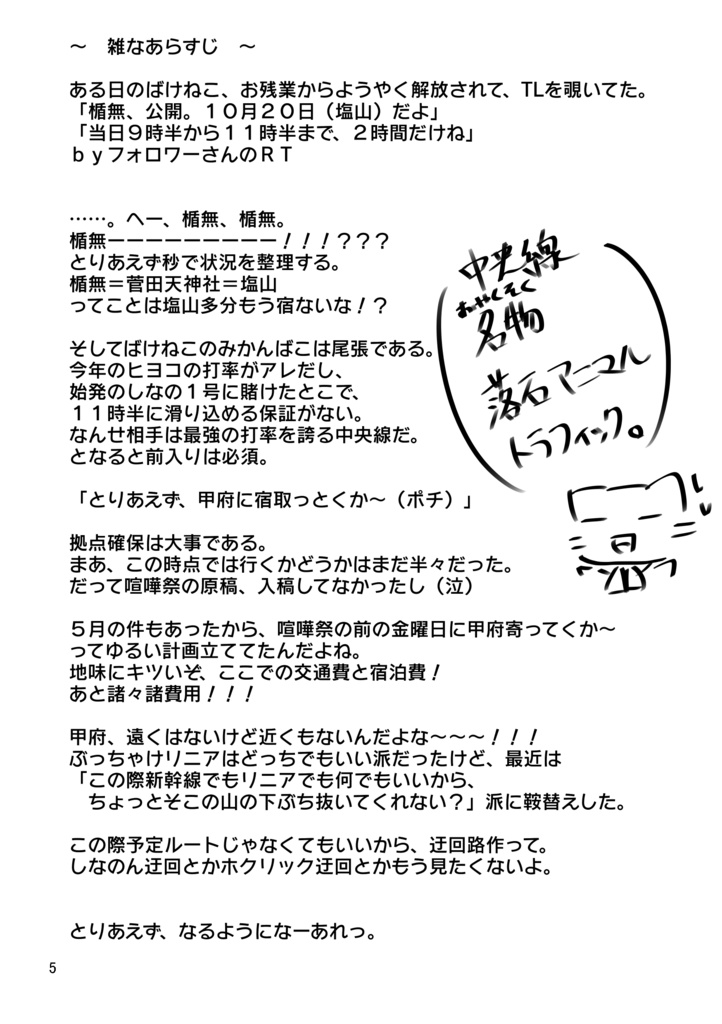 ～　雑なあらすじ　～
ある日のばけねこ、お残業からようやく解放されて、TLを覗いてた。
「楯無、公開。１０月２０日（塩山）だよ」
「当日９時半から１１時半まで、２時間だけね」
ｂｙフォロワーさんのＲＴ
……。へー、楯無、楯無。
楯無ーーーーーーーーー！！！？？？
とりあえず秒で状況を整理する。
楯無＝菅田天神社＝塩山
ってことは塩山多分もう宿ないな！？
そしてばけねこのみかんばこは尾張である。
今年のヒヨコの打率がアレだし、
始発のしなの１号に賭けたとこで、
１１時半に滑り込める保証がない。
なんせ相手は最強の打率を誇る中央線だ。
となると前入りは必須。
中央線
おやくそく
名物
落石アニマル
トラフィック。
「とりあえず、甲府に宿取っとくか～（ポチ）」
拠点確保は大事である。
まあ、この時点では行くかどうかはまだ半々だった。
だって喧嘩祭の原稿、入稿してなかったし（泣）
５月の件もあったから、喧嘩祭の前の金曜日に甲府寄ってくか～
ってゆるい計画立ててたんだよね。
地味にキツいぞ、ここでの交通費と宿泊費！
あと諸々諸費用！！！
甲府、遠くはないけど近くもないんだよな～～～！！！
ぶっちゃけリニアはどっちでもいい派だったけど、最近は
「この際新幹線でもリニアでも何でもいいから、
　ちょっとそこの山の下ぶち抜いてくれない？」派に鞍替えした。
この際予定ルートじゃなくてもいいから、迂回路作って。
しなのん迂回とかホクリック迂回とかもう見たくないよ。
とりあえず、なるようになーあれっ。
5